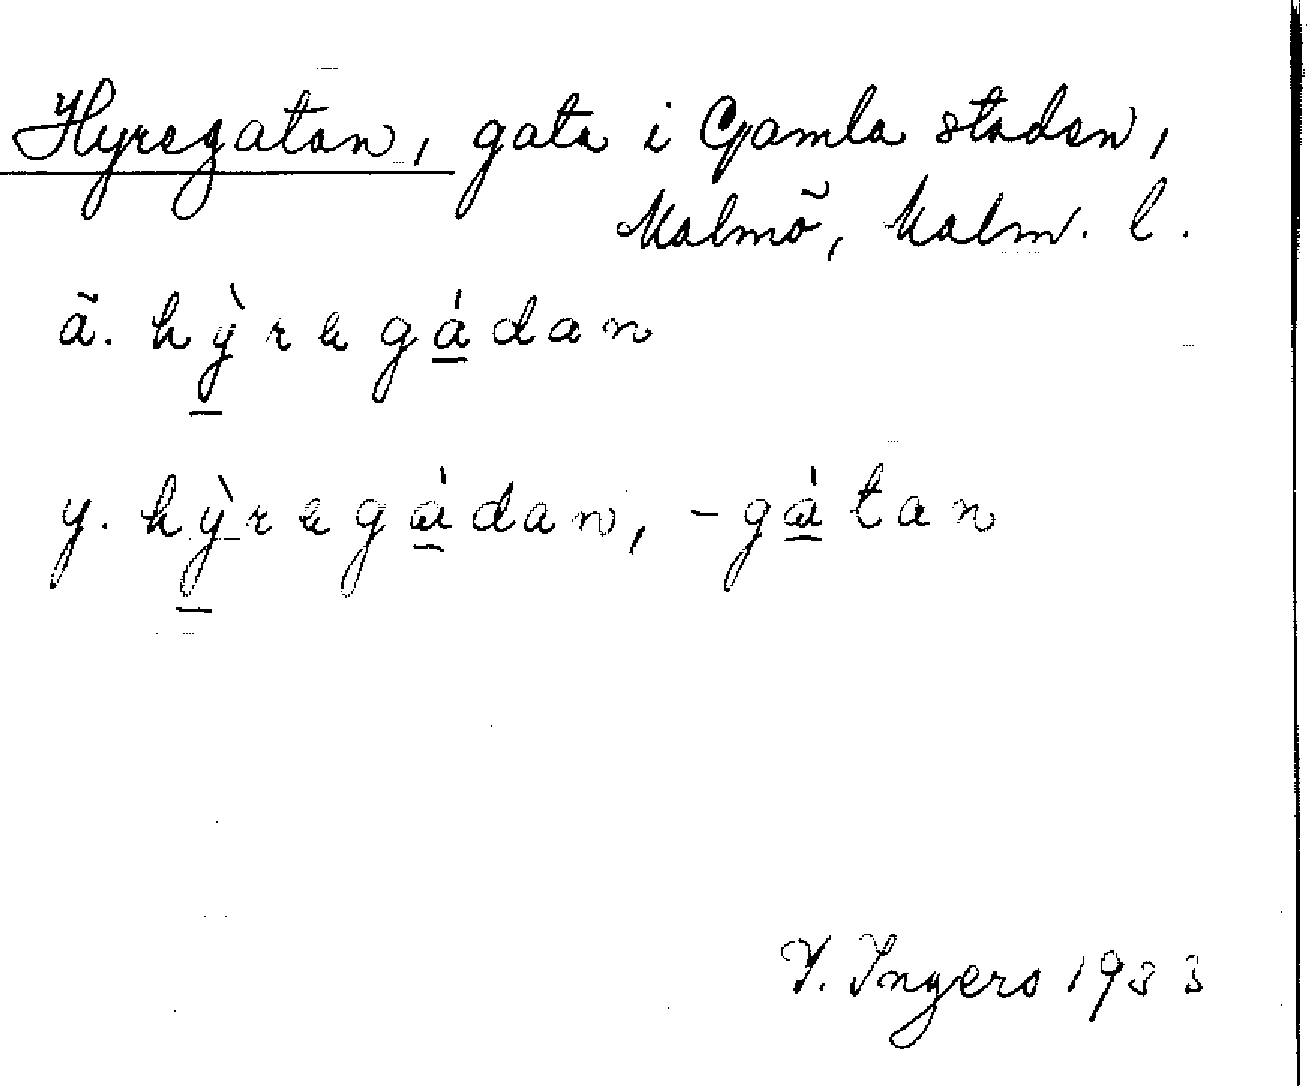 Hyregatan, gata i Gamla staden,
Malmö, Malm. l.
ä. hỳregádan
y. hỳregádan, -gátan
I. Ingers 1933